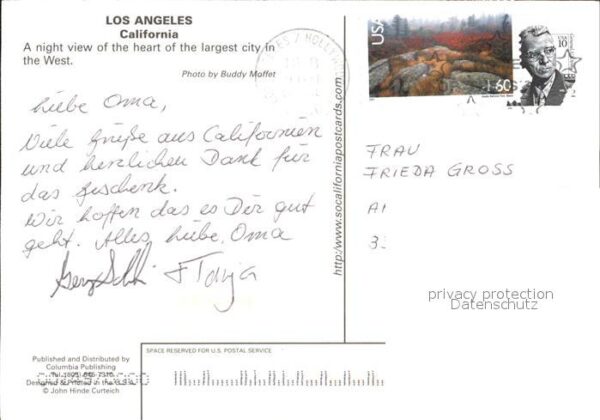 LOS ANGELES
California
A night view of the heart of the largest city in
the West.
Photo by Buddy Moffet
USA
60
10
Liebe Oma,
Viele Grüße aus Californien
und herzlichen Dank für
das Geschenk.
Wir hoffen das es Dir gut
geht. Alles, Liebe, Oma
+ Tanja
http://www.socaliforniapostcards.com
FRAU
FRIEDA GROSS
privacy protection
Datenschutz
SPACE RESERVED FOR U.S. POSTAL SERVICE
Published and Distributed by
Columbia Publishing
Designed & Printed in the
© John Hinde Curteich